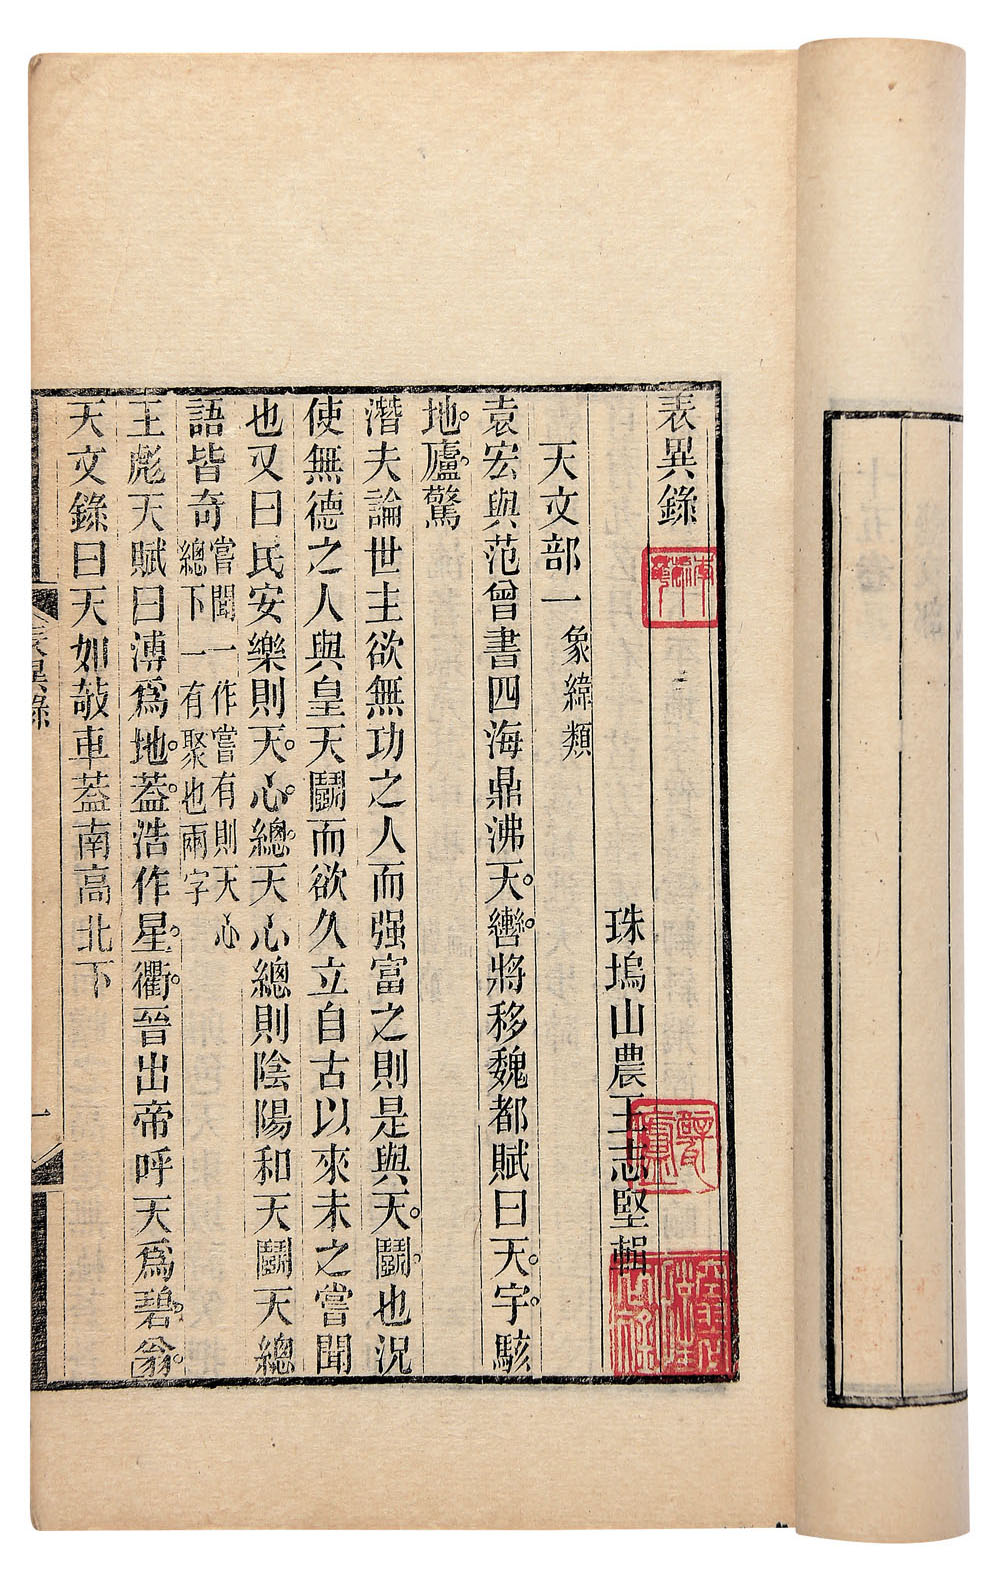 表異錄
珠塢山農王志堅輯
天文部一 象緯類
袁宏與范曾書四海鼎沸天轡將移魏都賦曰天宇駭
地廬驚
潛夫論世主欲無功之人而强富之則是與天鬬也況
使無德之人與皇天鬬而欲久立自古以來未之嘗聞
也又曰民安樂則天心總天心總則陰陽和天鬬天總
語皆奇嘗聞一作嘗有則天心
總下一有聚也兩字
王彪天賦曰溥爲地蓋浩作星衢晉出帝呼天爲碧翁
天文錄曰天如敧車蓋南高北下
表異錄
一